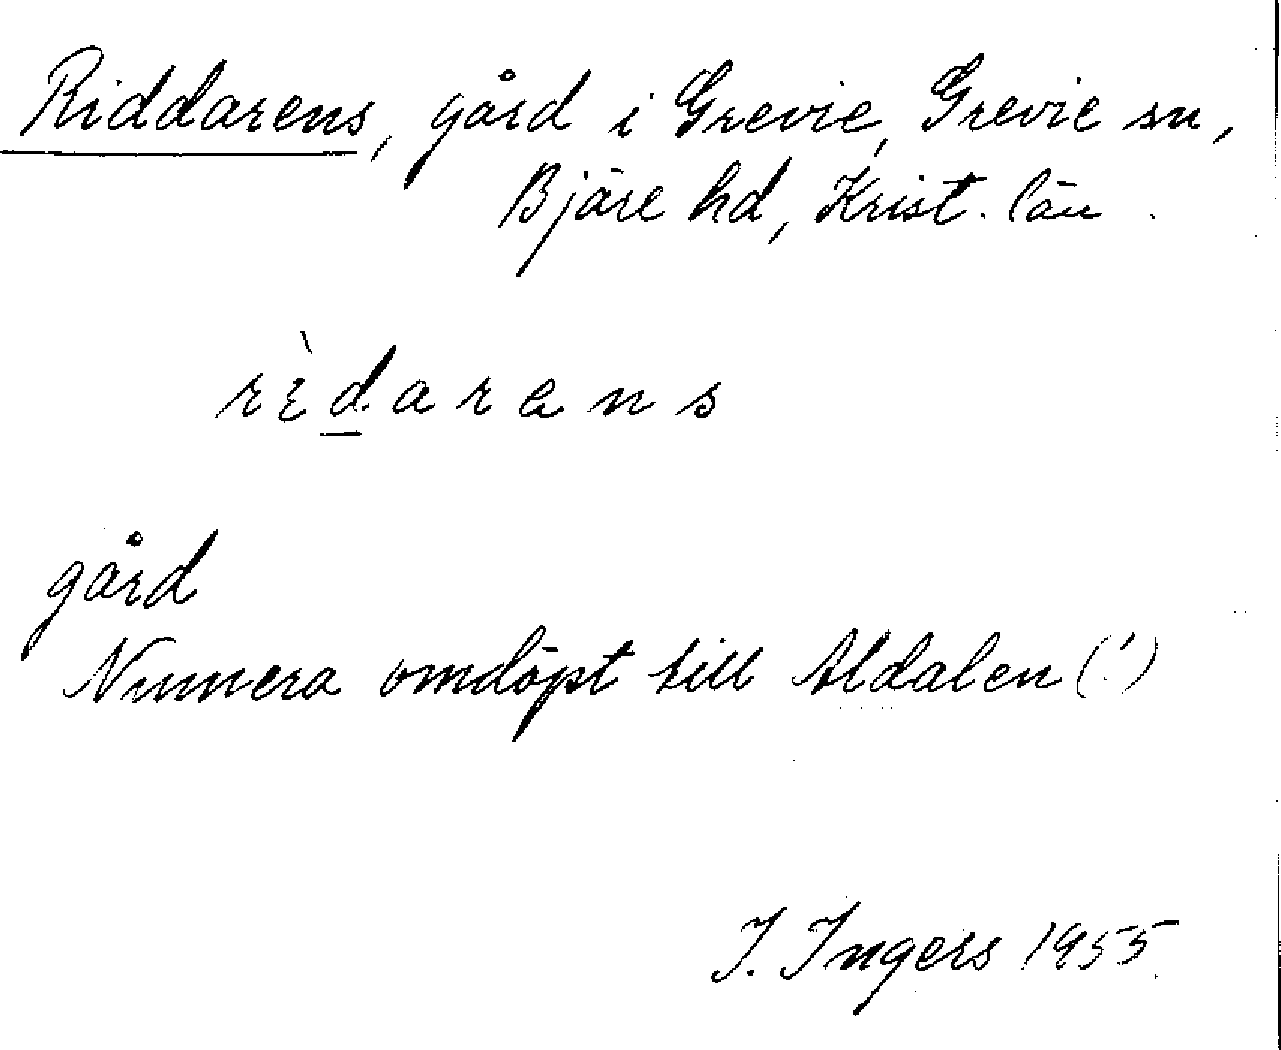 Riddarens, gård i Grevie, Grevie sn,
Bjäre hd, Krist. län.
rɛ̀d̲arɛns
gård
Numera omdöpt till Aldalen (!)
I. Ingers 1955.